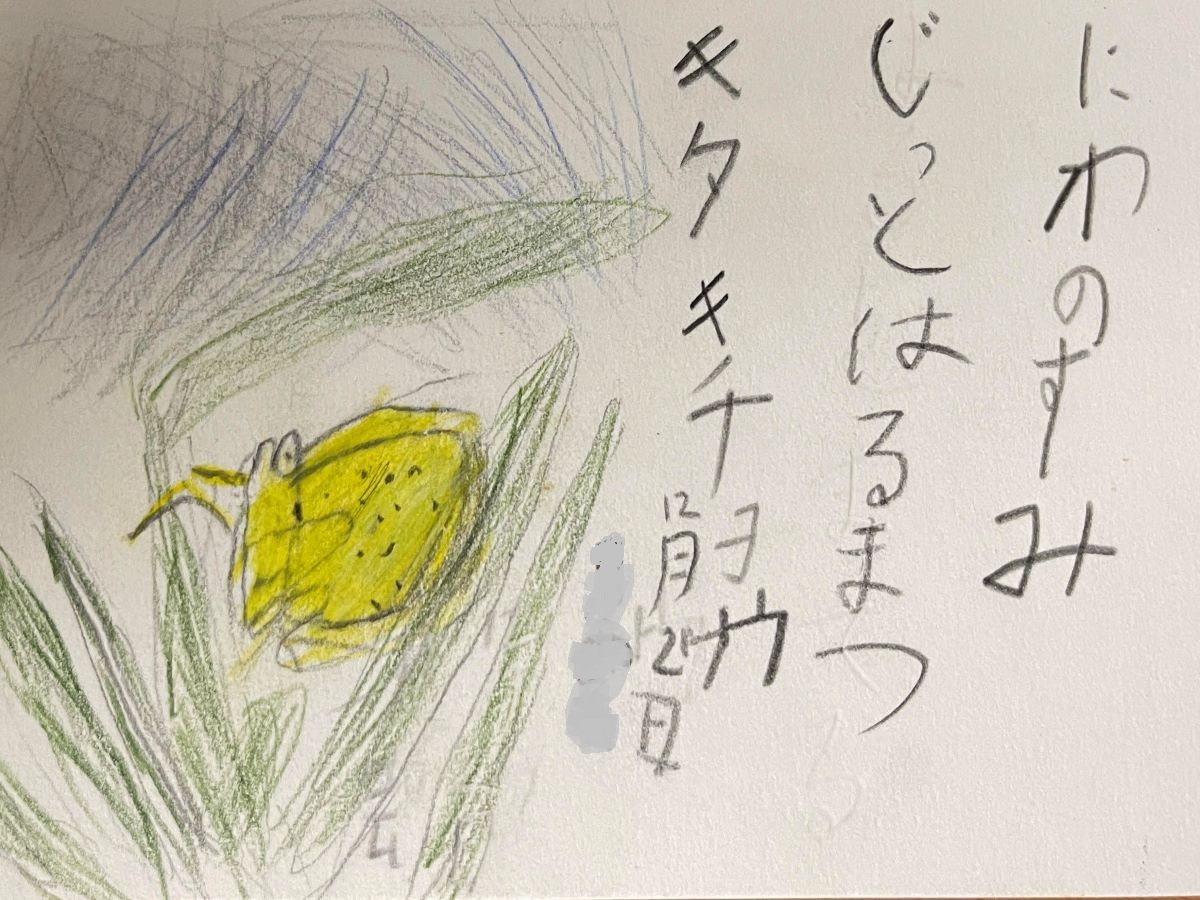 にわのすみ
じっとはるまつ
キタキチョウ